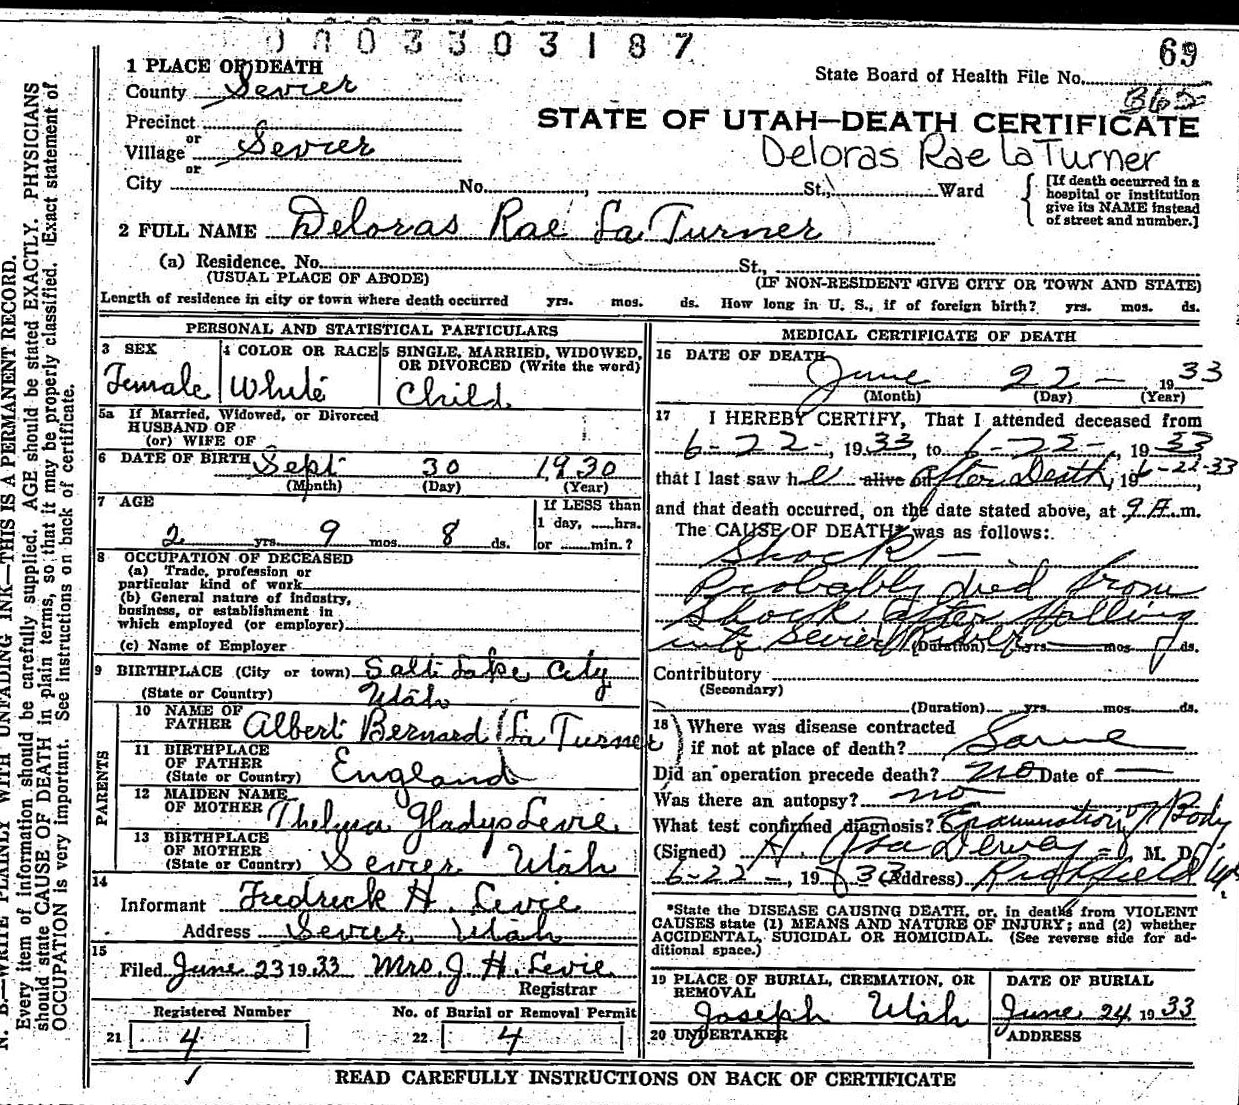 0003303187
69
State Board of Health File No.
362
STATE OF UTAH—DEATH CERTIFICATE
Deloras Rae LaTurner
1 PLACE OF DEATH
County Sevier
Precinct
or
Village Sevier
or
City No. , St., Ward
[If death occurred in a
hospital or institution
give its NAME instead
of street and number.]
2 FULL NAME Deloras Rae La Turner
(a) Residence. No. St.,
(USUAL PLACE OF ABODE) (IF NON-RESIDENT GIVE CITY OR TOWN AND STATE)
Length of residence in city or town where death occurred yrs. mos. ds. How long in U. S., if of foreign birth? yrs. mos. ds.
PERSONAL AND STATISTICAL PARTICULARS
3 SEX
Female
4 COLOR OR RACE
White
5 SINGLE, MARRIED, WIDOWED,
OR DIVORCED (Write the word)
Child
5a If Married, Widowed, or Divorced
HUSBAND OF
(or) WIFE OF
6 DATE OF BIRTH Sept 30 1930
(Month) (Day) (Year)
7 AGE
2 yrs. 9 mos. 8 ds.
If LESS than
1 day, ......hrs.
or ........min.?
8 OCCUPATION OF DECEASED
(a) Trade, profession or
particular kind of work
(b) General nature of industry,
business, or establishment in
which employed (or employer)
(c) Name of Employer
9 BIRTHPLACE (City or town) Salt Lake City
(State or Country) Utah
PARENTS
10 NAME OF
FATHER Albert Bernard La Turner
11 BIRTHPLACE
OF FATHER
(State or Country) England
12 MAIDEN NAME
OF MOTHER Thelma Gladys Levie
13 BIRTHPLACE
OF MOTHER
(State or Country) Sevier Utah
14
Informant Fredrick H. Levie
Address Sevier Utah
15
Filed June 23 1933 Mrs. J. H. Levie
Registrar
Registered Number
21 4
No. of Burial or Removal Permit
22 4
MEDICAL CERTIFICATE OF DEATH
16 DATE OF DEATH
June 22 - 1933
(Month) (Day) (Year)
17 I HEREBY CERTIFY, That I attended deceased from
6-22-, 1933, to 6-22-, 1933
that I last saw h alive on After Death, 19 6-22-33
and that death occurred, on the date stated above, at 9 A. m.
The CAUSE OF DEATH* was as follows:
Shock —
Probably died from
Shock after falling
into Sevier River
(Duration) yrs. mos. ds.
Contributory
(Secondary)
(Duration) yrs. mos. ds.
18 Where was disease contracted
if not at place of death? Same
Did an operation precede death? no Date of —
Was there an autopsy? no
What test confirmed diagnosis? Examination of Body
(Signed) H. Asa Dewey M. D.
6-22-, 1933 (Address) Richfield Ut
*State the DISEASE CAUSING DEATH, or, in deaths from VIOLENT
CAUSES state (1) MEANS AND NATURE OF INJURY; and (2) whether
ACCIDENTAL, SUICIDAL OR HOMICIDAL. (See reverse side for ad-
ditional space.)
19 PLACE OF BURIAL, CREMATION, OR
REMOVAL
Joseph Utah
DATE OF BURIAL
June 24 1933
20 UNDERTAKER
ADDRESS
READ CAREFULLY INSTRUCTIONS ON BACK OF CERTIFICATE
N. B.—WRITE PLAINLY WITH UNFADING INK—THIS IS A PERMANENT RECORD.
Every item of information should be carefully supplied. AGE should be stated EXACTLY. PHYSICIANS
should state CAUSE OF DEATH in plain terms, so that it may be properly classified. Exact statement of
OCCUPATION is very important. See instructions on back of certificate.